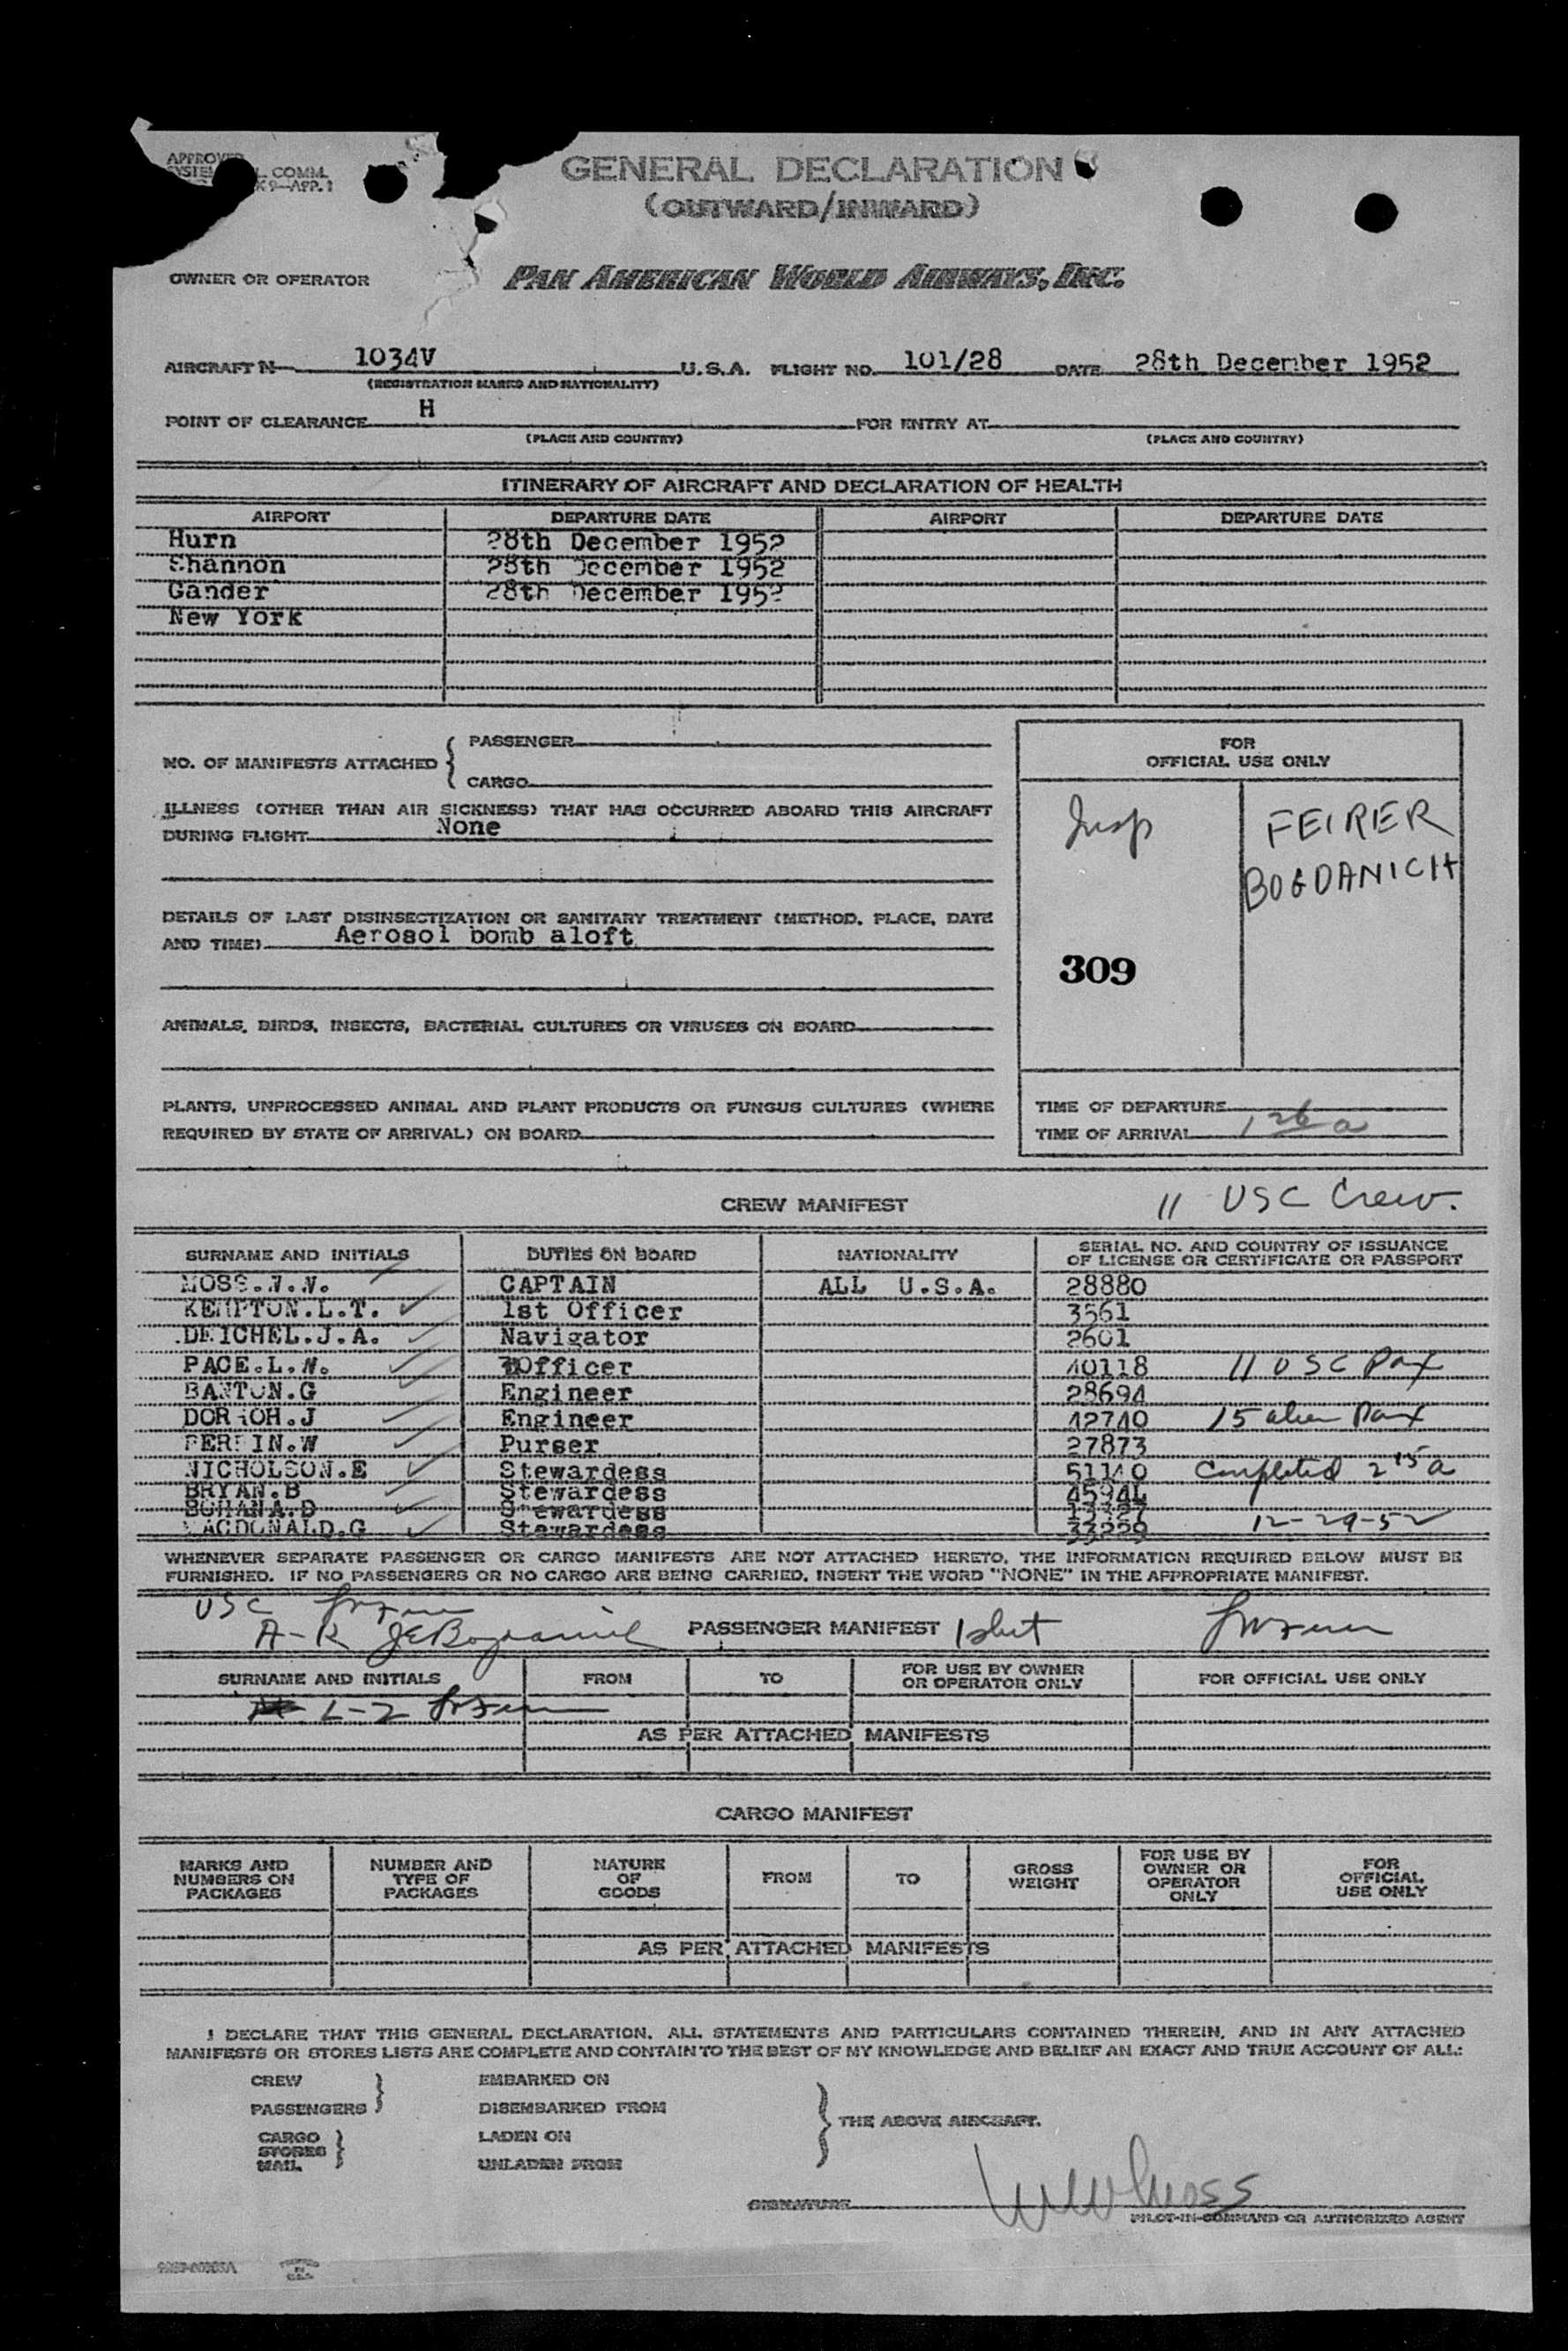 GENERAL DECLARATION
(OUTWARD/INWARD)
APPROVED
L. COMM.
9—APP. 1
OWNER OR OPERATOR PAN AMERICAN WORLD AIRWAYS, INC.
AIRCRAFT N 1034V U.S.A. FLIGHT NO. 101/28 DATE 28th December 1952
(REGISTRATION MARKS AND NATIONALITY)
POINT OF CLEARANCE H FOR ENTRY AT
(PLACE AND COUNTRY) (PLACE AND COUNTRY)
ITINERARY OF AIRCRAFT AND DECLARATION OF HEALTH
AIRPORT DEPARTURE DATE AIRPORT DEPARTURE DATE
Hurn 28th December 1952
Shannon 28th December 1952
Gander 28th December 1952
New York
NO. OF MANIFESTS ATTACHED { PASSENGER
CARGO
ILLNESS (OTHER THAN AIR SICKNESS) THAT HAS OCCURRED ABOARD THIS AIRCRAFT
DURING FLIGHT None
DETAILS OF LAST DISINSECTIZATION OR SANITARY TREATMENT (METHOD, PLACE, DATE
AND TIME) Aerosol bomb aloft
ANIMALS, BIRDS, INSECTS, BACTERIAL CULTURES OR VIRUSES ON BOARD
PLANTS, UNPROCESSED ANIMAL AND PLANT PRODUCTS OR FUNGUS CULTURES (WHERE
REQUIRED BY STATE OF ARRIVAL) ON BOARD
FOR
OFFICIAL USE ONLY
Insp FEIRER
BOGDANICH
309
TIME OF DEPARTURE
TIME OF ARRIVAL 1 26 a
CREW MANIFEST 11 USC Crew.
SURNAME AND INITIALS DUTIES ON BOARD NATIONALITY SERIAL NO. AND COUNTRY OF ISSUANCE
OF LICENSE OR CERTIFICATE OR PASSPORT
MOSS.W.W. CAPTAIN ALL U.S.A. 28880
KEMPTON.L.T. 1st Officer 3561
DEICHEL.J.A. Navigator 2601
PACE.L.N. Officer 40118 11 USC Pax
BANTON.G Engineer 28694
J Engineer 42740 15 alien Pax
W Purser 27873
NICHOLSON.E Stewardess 51140 Completed 2 15 a
BRYAN.B Stewardess
BOHANA.D Stewardess 12-29-52
MACDONALD.G Stewardess 33229
WHENEVER SEPARATE PASSENGER OR CARGO MANIFESTS ARE NOT ATTACHED HERETO, THE INFORMATION REQUIRED BELOW MUST BE
FURNISHED. IF NO PASSENGERS OR NO CARGO ARE BEING CARRIED, INSERT THE WORD "NONE" IN THE APPROPRIATE MANIFEST.
USC
A-R JEBogdanich PASSENGER MANIFEST 1 sht
SURNAME AND INITIALS FROM TO FOR USE BY OWNER
OR OPERATOR ONLY FOR OFFICIAL USE ONLY
L-2
AS PER ATTACHED MANIFESTS
CARGO MANIFEST
MARKS AND
NUMBERS ON
PACKAGES NUMBER AND
TYPE OF
PACKAGES NATURE
OF
GOODS FROM TO GROSS
WEIGHT FOR USE BY
OWNER OR
OPERATOR
ONLY FOR
OFFICIAL
USE ONLY
AS PER ATTACHED MANIFESTS
I DECLARE THAT THIS GENERAL DECLARATION, ALL STATEMENTS AND PARTICULARS CONTAINED THEREIN, AND IN ANY ATTACHED
MANIFESTS OR STORES LISTS ARE COMPLETE AND CONTAIN TO THE BEST OF MY KNOWLEDGE AND BELIEF AN EXACT AND TRUE ACCOUNT OF ALL:
CREW EMBARKED ON
PASSENGERS DISEMBARKED FROM
THE ABOVE AIRCRAFT.
CARGO LADEN ON
STORES
MAIL UNLADEN FROM
SIGNATURE WWMoss
PILOT-IN-COMMAND OR AUTHORIZED AGENT